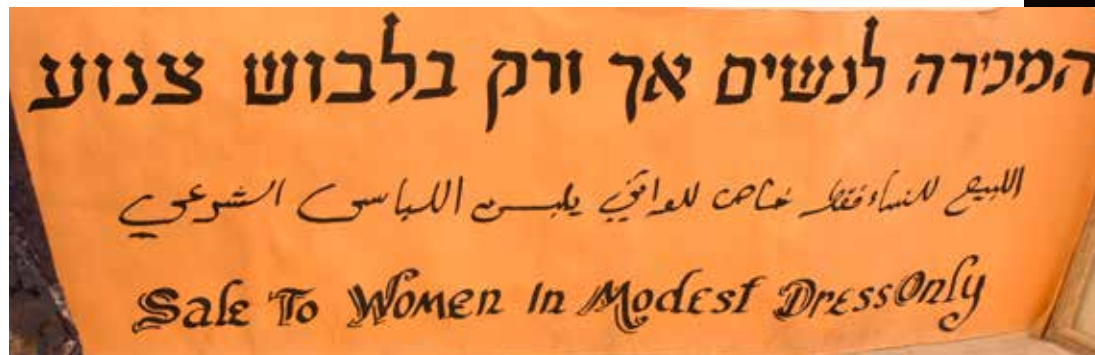 המכירה לנשים אך ורק בלבוש צנוע
اللبيع للنساء فقط خاص للواتي يلبسن اللباس الشرعي
Sale To Women In Modest Dress Only